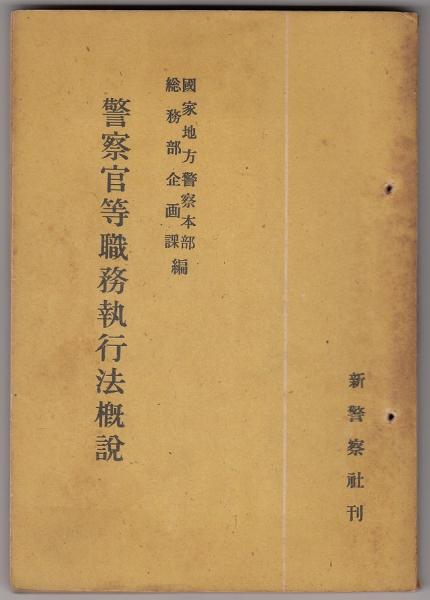 新警察社刊
國家地方警察本部
総務部企画課編
警察官等職務執行法概說